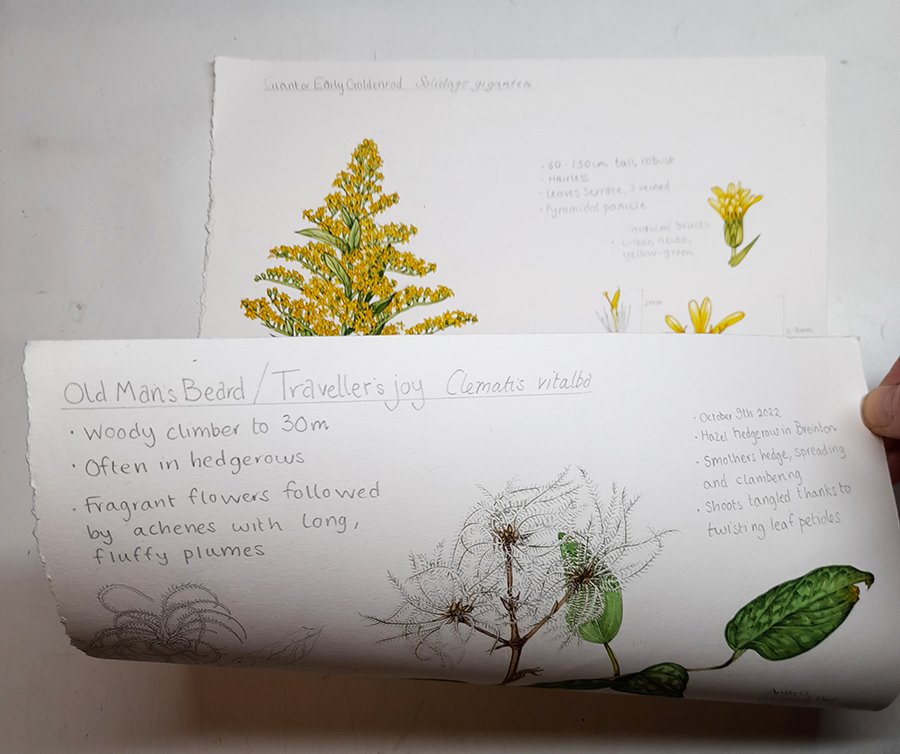 Giant or Early Goldenrod Solidago gigantea
· 60-150cm tall, robust
· Hairless
· Leaves serrate, 3 veined
· Pyramidal panicle
linear, acute,
yellow-green
2mm
Old Man's Beard / Traveller's joy Clematis vitalba
· Woody climber to 30m
· Often in hedgerows
· Fragrant flowers followed
by achenes with long,
fluffy plumes
· October 9th 2022
· Hazel hedgerow in Breinton
· Smothers hedge, spreading
and clambering
· Shoots tangled thanks to
twisting leaf petioles